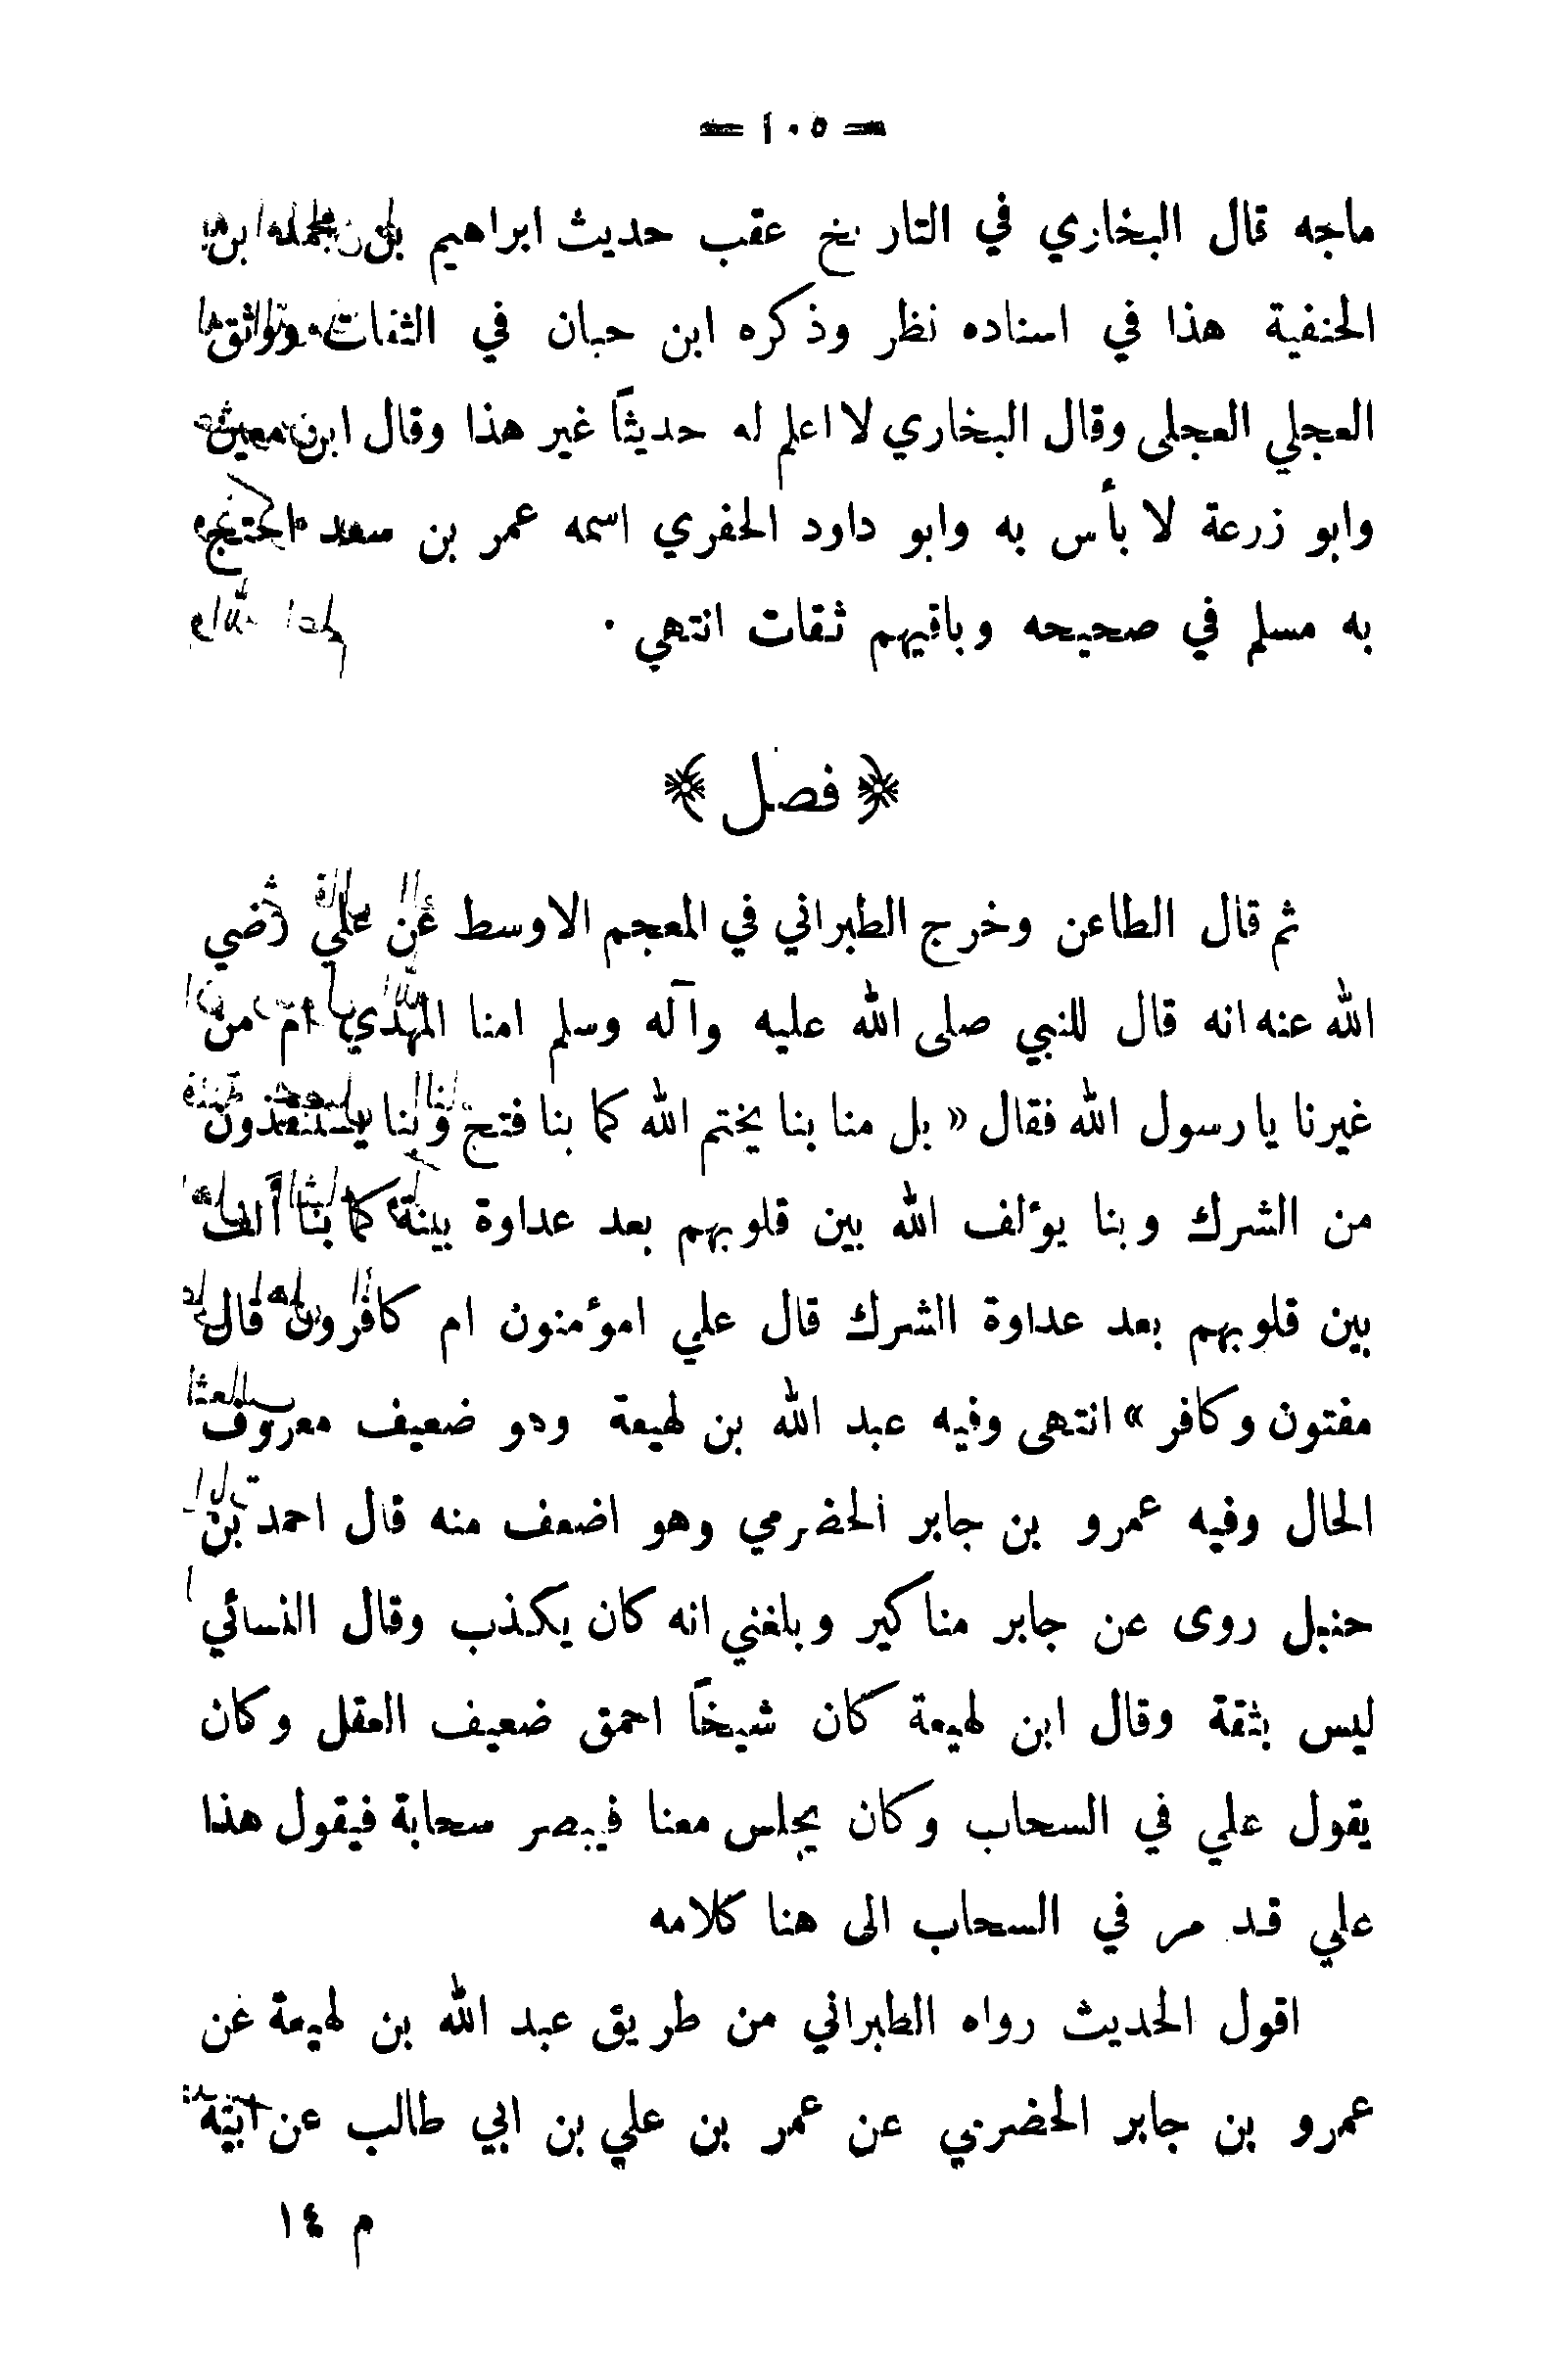 = ١٠٥ =
ماجه قال البخاري في التاريخ عقب حديث ابراهيم بن محمد بن
الحنفية هذا في اسناده نظر وذكره ابن حبان في الثقات ووثق
العجلي العجلى وقال البخاري لا اعلم له حديثاً غير هذا وقال ابن معين
وابو زرعة لا بأس به وابو داود الحفري اسمه عمر بن سعد احتج
به مسلم في صحيحه وباقيهم ثقات انتهي ٠
﴿ فصل ﴾
ثم قال الطاعن وخرج الطبراني في المعجم الاوسط عن علي رضي
الله عنه انه قال للنبي صلى الله عليه وآله وسلم امنا المهدي ام من
غيرنا يا رسول الله فقال « بل منا بنا يختم الله كما بنا فتح وبنا يستنقذون
من الشرك وبنا يؤلف الله بين قلوبهم بعد عداوة بينة كما بنا ألف
بين قلوبهم بعد عداوة الشرك قال علي امؤمنون ام كافرون قال
مفتون وكافر » انتهى وفيه عبد الله بن لهيعة وهو ضعيف معروف
الحال وفيه عمرو بن جابر الحضرمي وهو اضعف منه قال احمد بن
حنبل روى عن جابر مناكير وبلغني انه كان يكذب وقال النسائي
ليس بثقة وقال ابن لهيعة كان شيخاً احمق ضعيف العقل وكان
يقول علي في السحاب وكان يجلس معنا فيبصر سحابة فيقول هذا
علي قد مر في السحاب الى هنا كلامه
اقول الحديث رواه الطبراني من طريق عبد الله بن لهيعة عن
عمرو بن جابر الحضرمي عن عمر بن علي بن ابي طالب عن ابيه
م ١٤